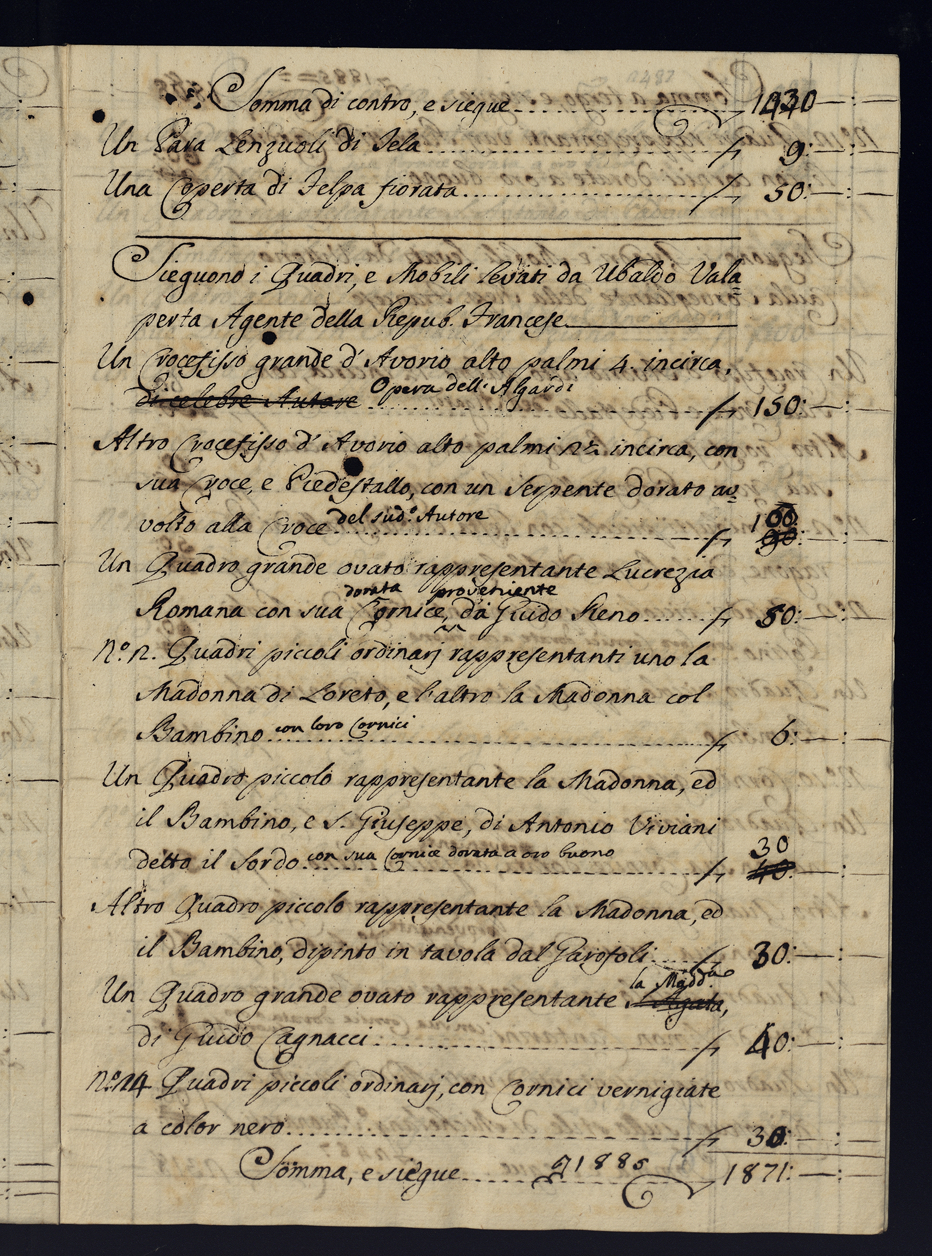 Somma di contro, e siegue 1430:—:
Un Para Lenzuoli di Tela 9:—:
Una Coperta di Telpa fiorata 50:—:
Sieguono i Quadri, e Mobili levati da Ubaldo Vala=
perta Agente della Repub. Francese
Un Crocefisso grande d'Avorio alto palmi 4. incirca,
di celebre Autore Opera dell'Algardi 150:—:
Altro Crocefisso d'Avorio alto palmi 2½ incirca, con
sua Croce, e Piedestallo, con un Serpente dorato av=
volto alla Croce del sudº Autore 100: 90:—:
Un Quadro grande ovato rappresentante Lucrezia
dorata proveniente
Romana con sua Cornice, da Guido Reno 50:—:
Nº. 2. Quadri piccoli ordinarj rappresentanti uno la
Madonna di Loreto, e l'altro la Madonna col
Bambino con loro Cornici 6:—:
Un Quadro piccolo rappresentante la Madonna, ed
il Bambino, e S. Giuseppe, di Antonio Viviani
30
detto il Sordo con sua Cornice dorata a oro buono 40:—:
Altro Quadro piccolo rappresentante la Madonna, ed
il Bambino, dipinto in tavola dal Garofoli 30:—:
la Madd.
Un Quadro grande ovato rappresentante S. Agata,
di Guido Cagnacci 40:—:
Nº. 14 Quadri piccoli ordinarj, con Cornici vernigiate
a color nero 30:—:
Somma, e siegue 1885 1871:—: